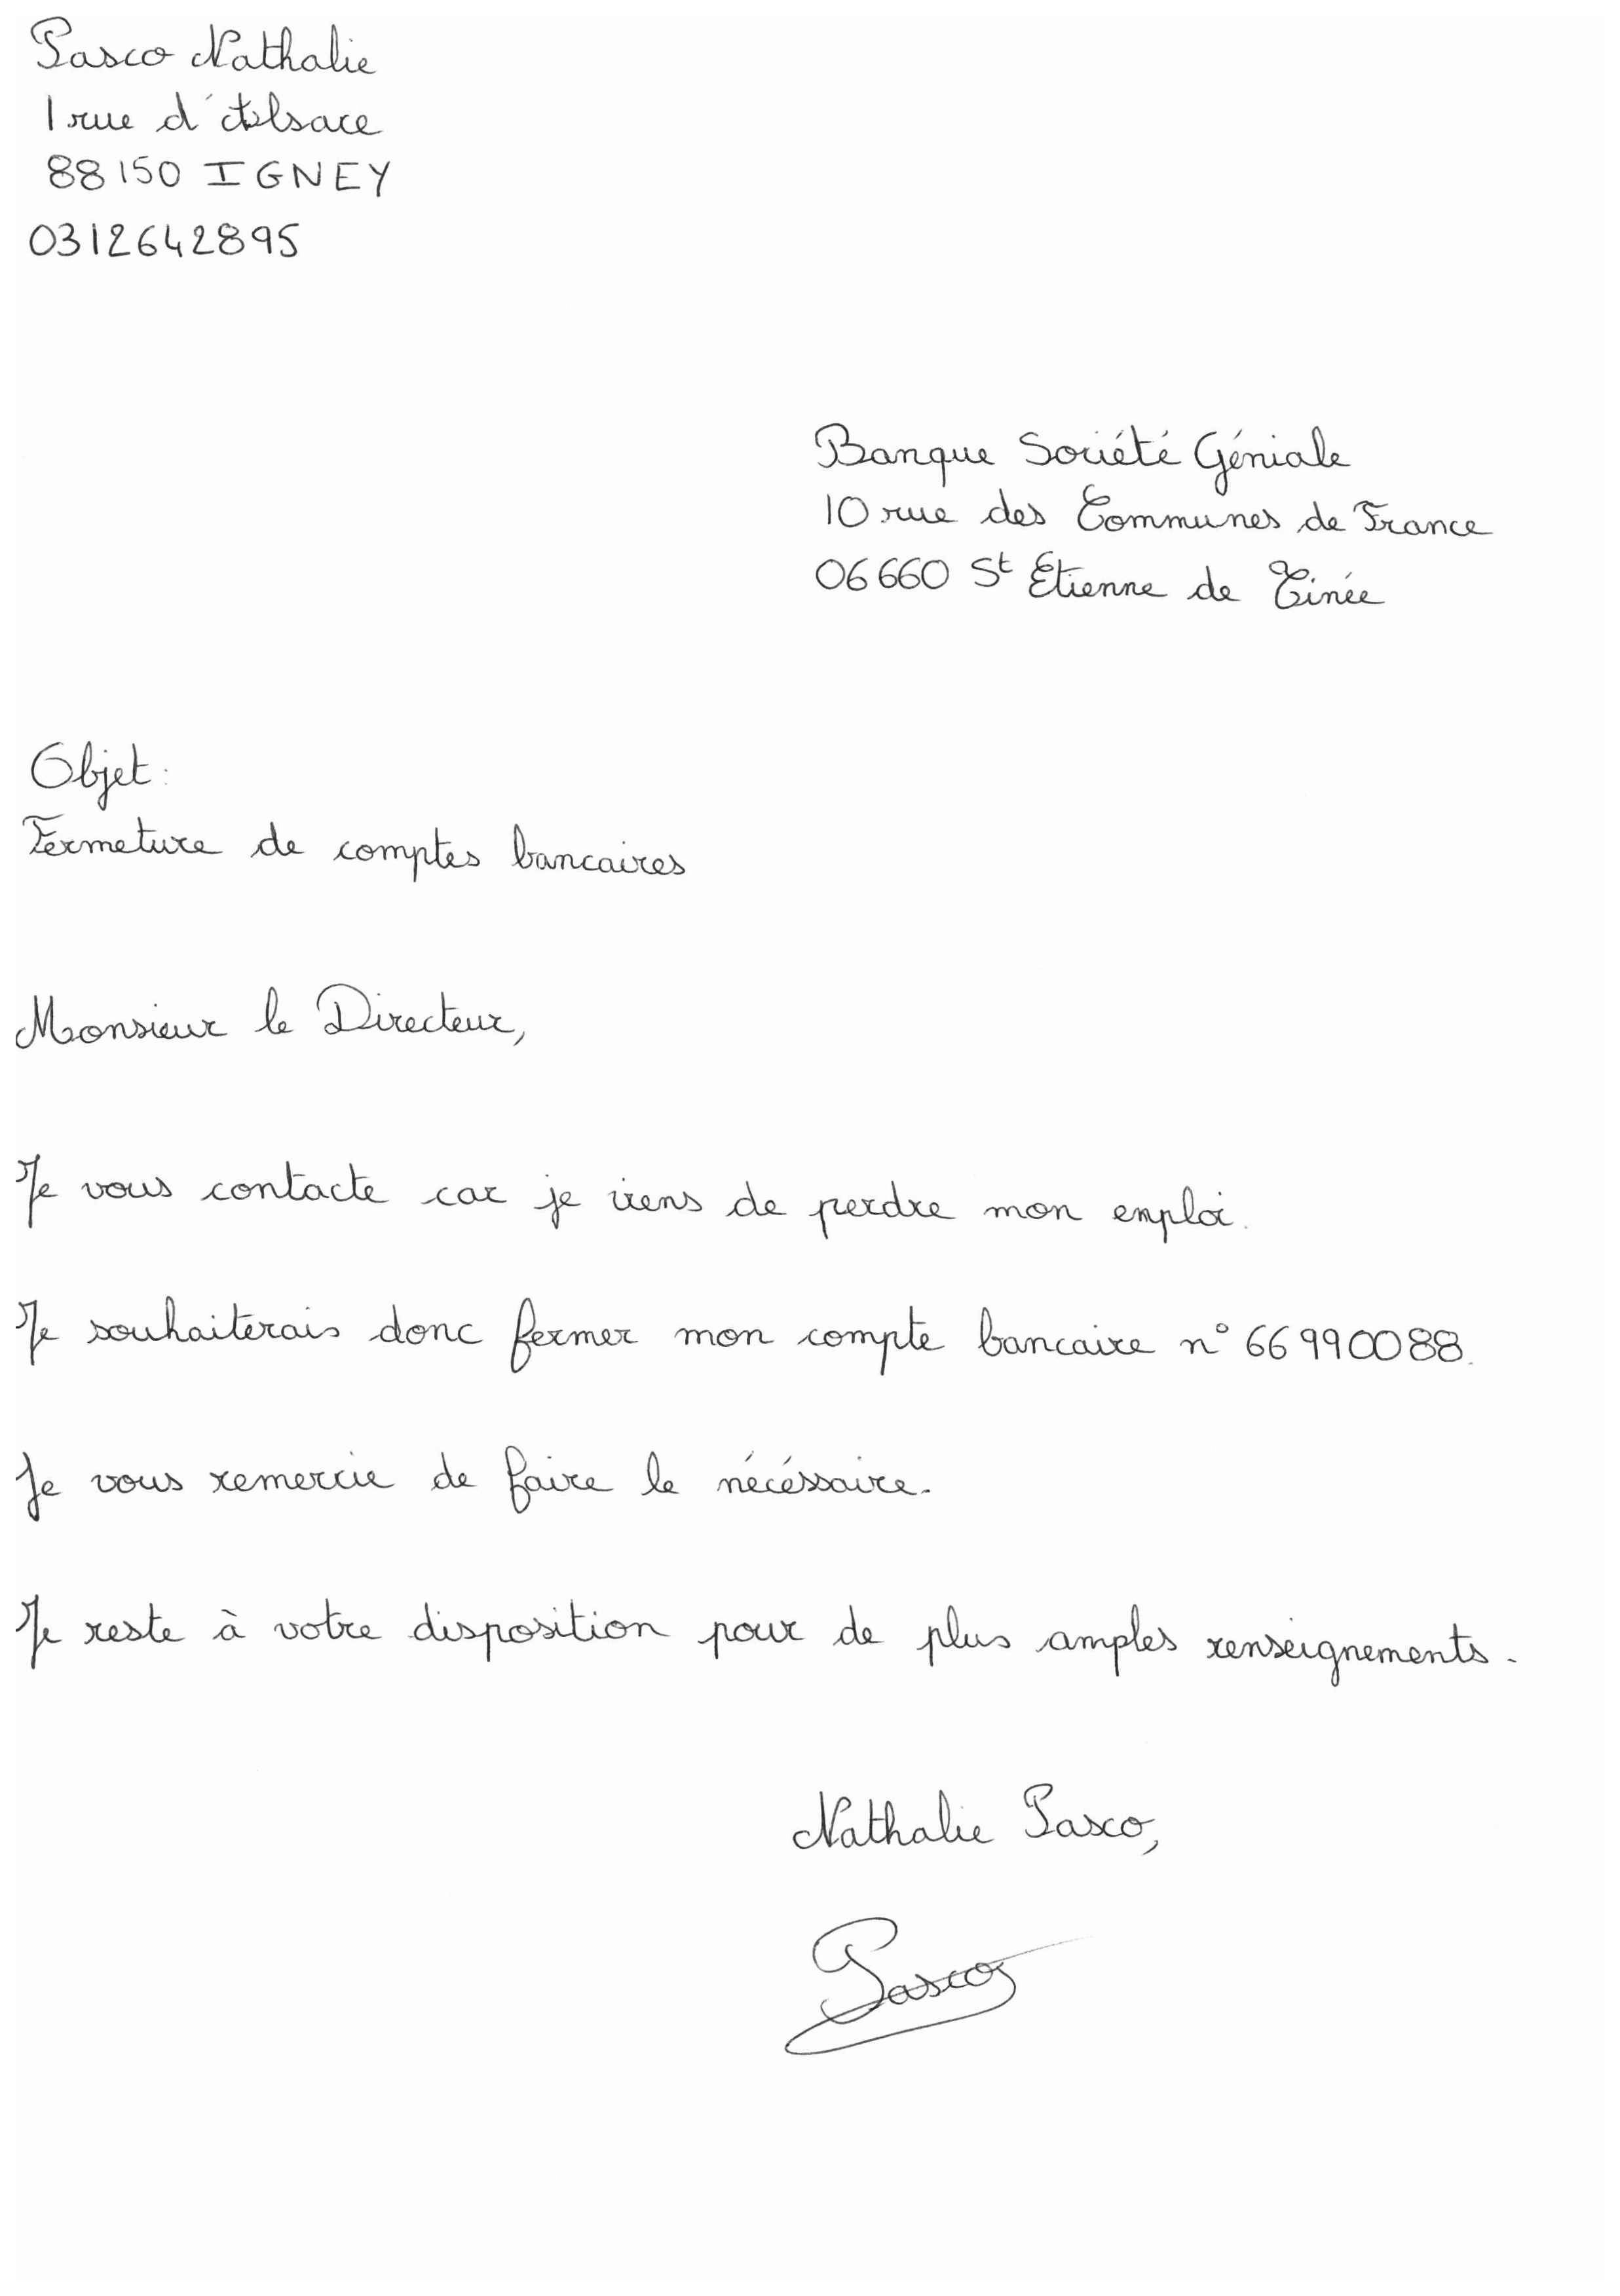 Pasco Nathalie
1 rue d'Alsace
88150 IGNEY
0312642895
Banque Société Géniale
10 rue des Communes de France
06660 St Etienne de Tinée
Objet :
Fermeture de comptes bancaires
Monsieur le Directeur,
Je vous contacte car je viens de perdre mon emploi.
Je souhaiterais donc fermer mon compte bancaire n° 66990088.
Je vous remercie de faire le nécéssaire.
Je reste à votre disposition pour de plus amples renseignements.
Nathalie Pasco,
Pasco